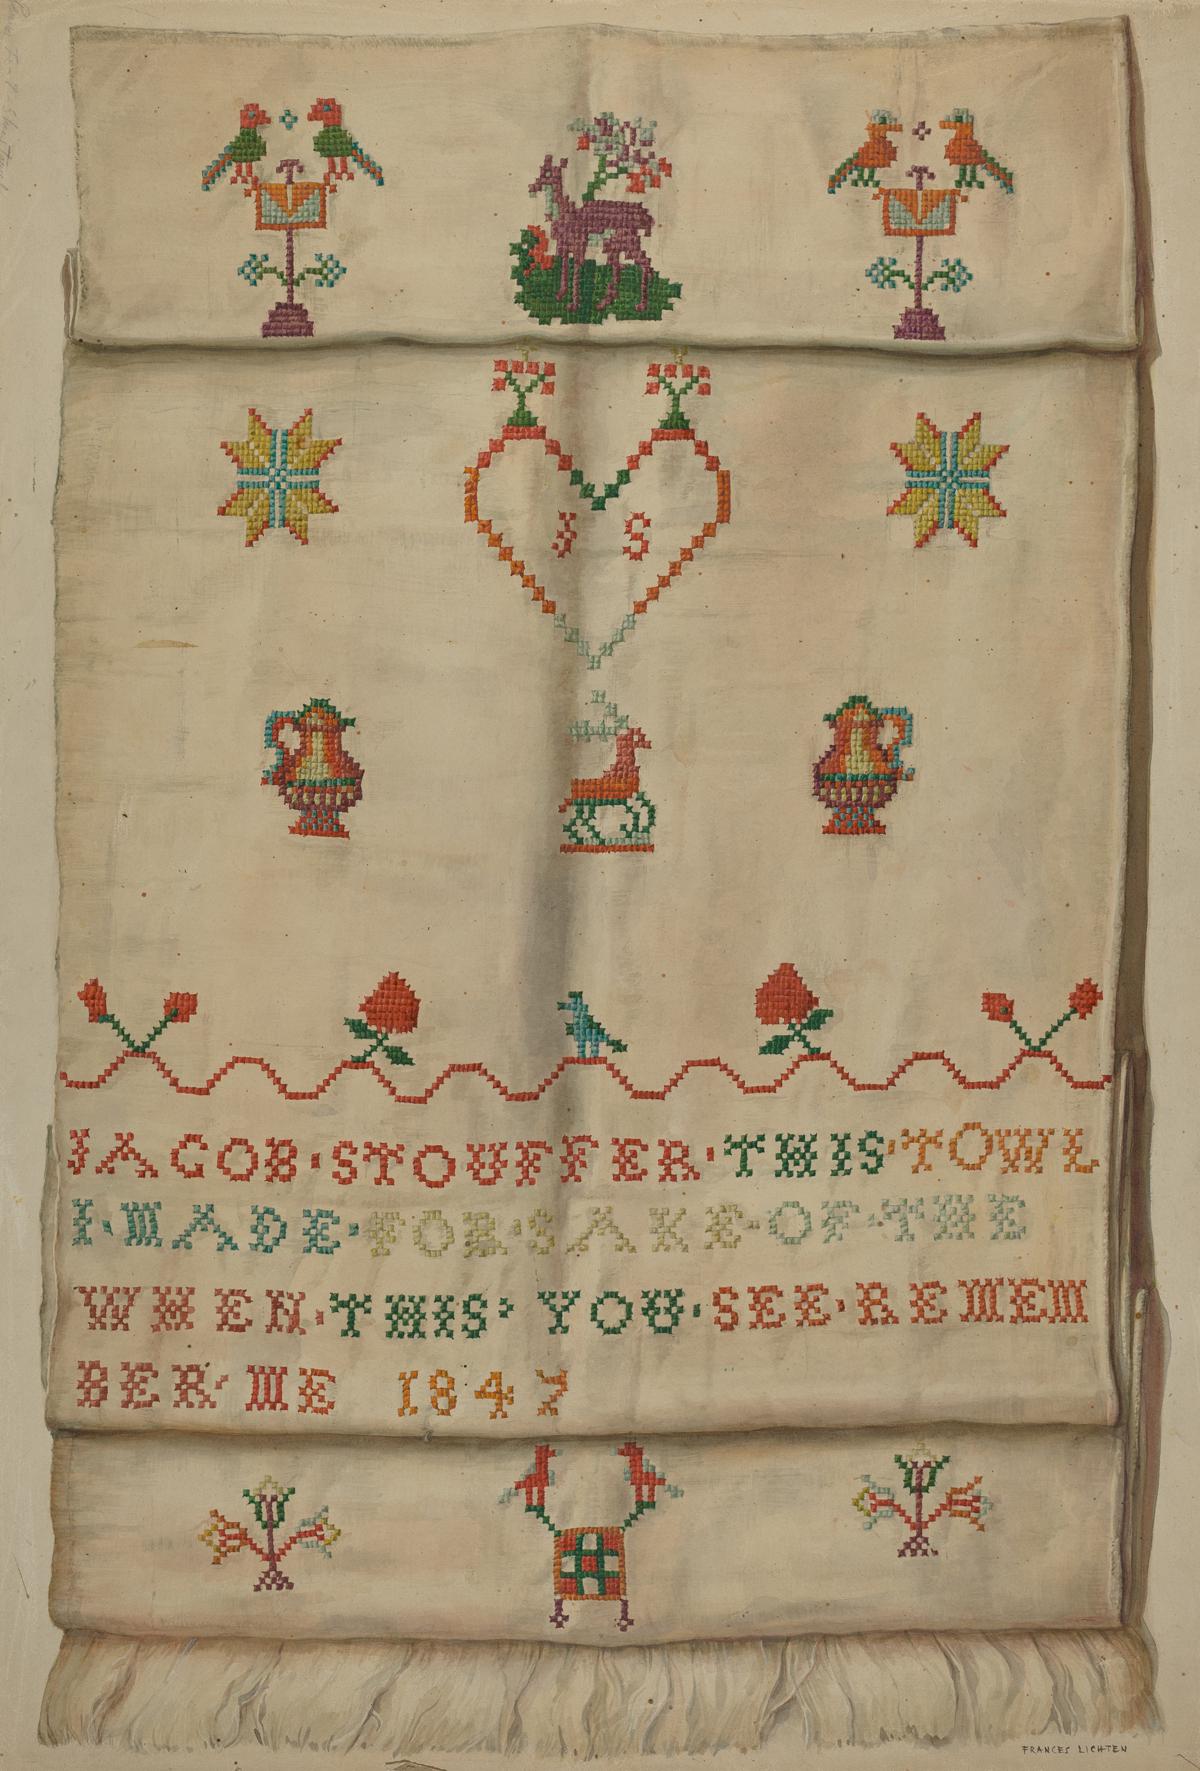 J S
JACOB·STOUFFER·THIS·TOWL
I·MADE·FOR·SAKE·OF·THE
WHEN·THIS·YOU·SEE·REMEM
BER·ME 1847
FRANCES LICHTEN